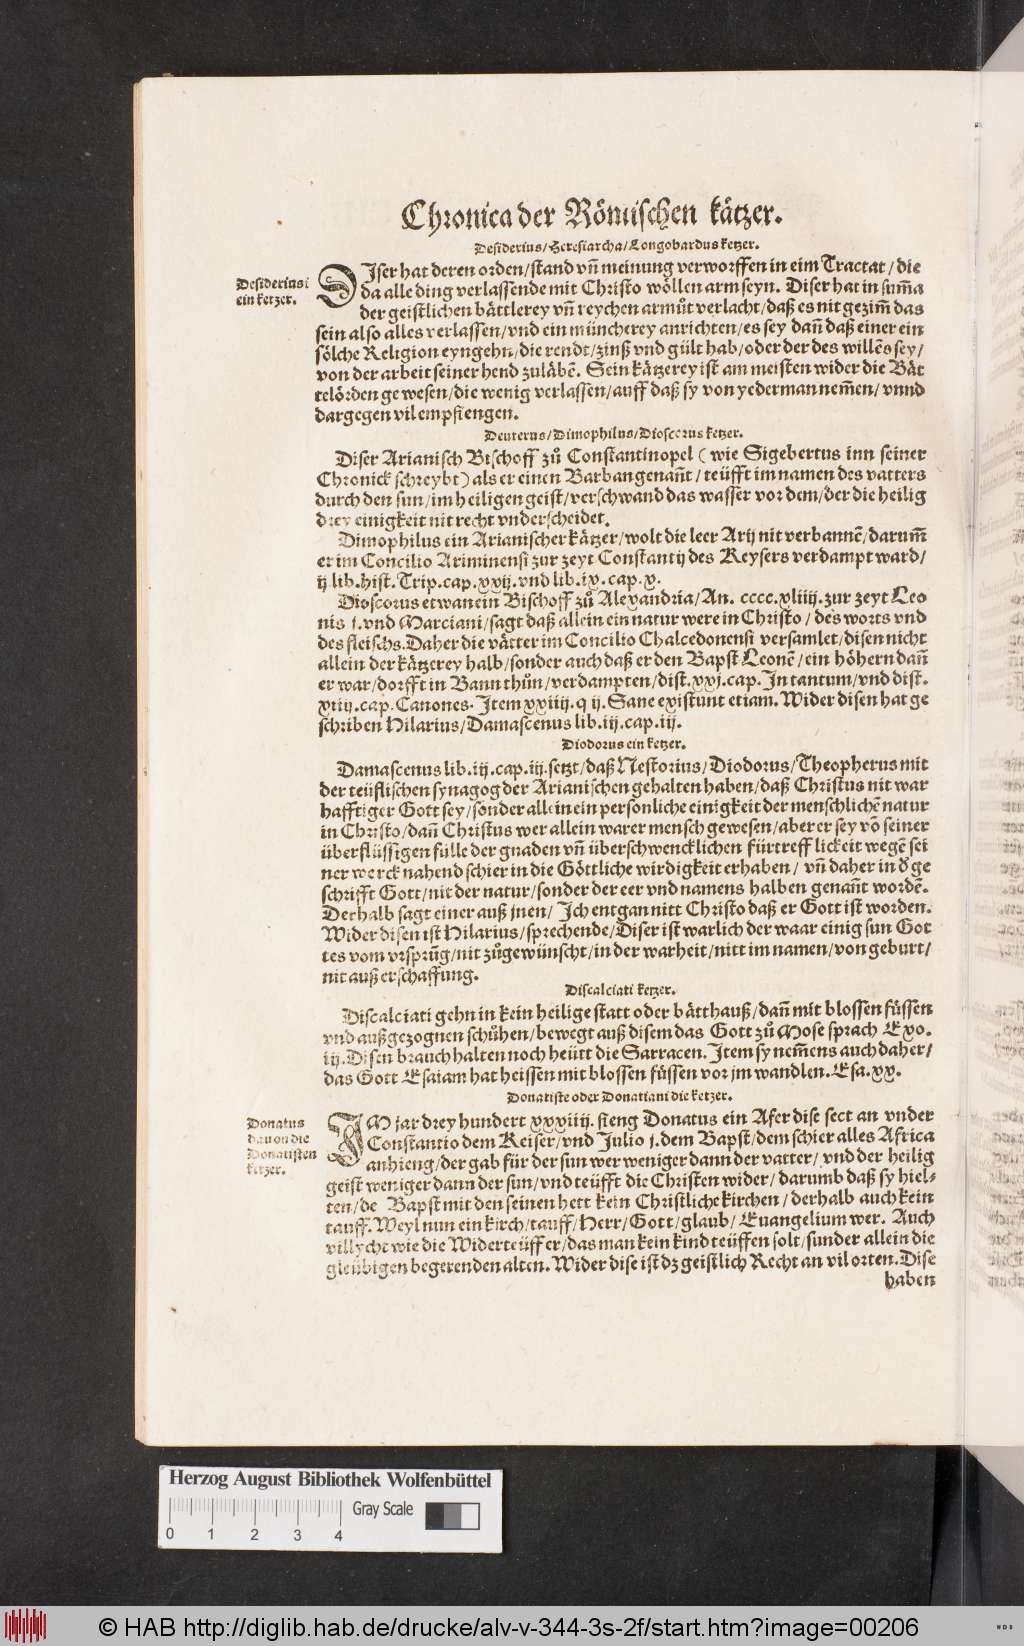 Chronica der Römischen kätzer.
Desiderius/Heresiarcha/Longobardus ketzer.
Desiderius
ein ketzer.
DIser hat deren orden/stand vn̄ meinung verworffen in eim Tractat/die
da alle ding verlassende mit Christo wöllen arm seyn. Diser hat in sum̄a
der geistlichen bättlerey vn̄ reychen armůt verlacht/daß es nit gezim̄ das
sein also alles verlassen/vnd ein müncherey anrichten/es sey dañ daß einer ein
sölche Religion eyngehn/die rendt/zinß vnd gült hab/oder der des willēs sey/
von der arbeit seiner hend zuläbē. Sein kätzerey ist am meisten wider die Bät
telörden gewesen/die wenig verlassen/auff daß sy von yederman nem̄en/vnnd
dargegen vil empfiengen.
Deuterus/Dimophilus/Dioscorus ketzer.
Diser Arianisch Bischoff zů Constantinopel (wie Sigebertus inn seiner
Chronick schreybt) als er einen Barban genañt/teüfft im namen des vatters
durch den sun/im heiligen geist/verschwand das wasser vor dem/der die heilig
drey einigkeit nit recht vnderscheidet.
Dimophilus ein Arianischer kätzer/wolt die leer Arij nit verbannē/darum̄
er im Concilio Ariminensi zur zeyt Constantij des Keysers verdampt ward/
ij lib. hist. Trip. cap. xxij. vnd lib. ix. cap. x.
Dioscorus etwan ein Bischoff zů Alexandria/An. cccc.xliiij. zur zeyt Leo
nis j. vnd Marciani/sagt daß allein ein natur were in Christo/des worts vnd
des fleischs. Daher die vätter im Concilio Chalcedonensi versamlet/disen nicht
allein der kätzerey halb/sonder auch daß er den Bapst Leonē/ein höhern dañ
er war/dorfft in Bann thůn/verdampten/dist. xxj. cap. In tantum/vnd dist.
xiij. cap. Canones. Item xxiiij. q ij. Sane existunt etiam. Wider disen hat ge
schriben Hilarius/Damascenus lib. iij. cap. iij.
Diodorus ein ketzer.
Damascenus lib. iij. cap. iij. setzt/daß Nestorius/Diodorus/Theopherus mit
der teüflischen synagog der Arianischen gehalten haben/daß Christus nit war
hafftiger Gott sey/sonder allein ein personliche einigkeit der menschlichē natur
in Christo/dañ Christus wer allein warer mensch gewesen/aber er sey vō seiner
überflüssigen fülle der gnaden vn̄ überschwencklichen fürtrefflickeit wegē sei
ner werck nahend schier in die Göttliche wirdigkeit erhaben/vn̄ daher in d' ge
schrifft Gott/nit der natur/sonder der eer vnd namens halben genañt wordē.
Derhalb sagt einer auß jnen/Ich entgan nitt Christo daß er Gott ist worden.
Wider disen ist Hilarius/sprechende/Diser ist warlich der waar einig sun Got
tes vom vrsprūg/nit zůgewünscht/in der warheit/nitt im namen/von geburt/
nit auß erschaffung.
Discalciati ketzer.
Discalciati gehn in kein heilige statt oder bätthauß/dañ mit blossen füssen
vnd außgezognen schůhen/bewegt auß disem das Gott zů Mose sprach Exo.
iij. Disen brauch halten noch heütt die Sarracen. Item sy nem̄ens auch daher/
das Gott Esaiam hat heissen mit blossen füssen vor jm wandlen. Esa. xx.
Donatiste oder Donatiani die ketzer.
Donatus
dauon die
Donatisten
ketzer.
IM jar drey hundert xxxiiij. fieng Donatus ein Afer dise sect an vnder
Constantio dem Keiser/vnd Julio j. dem Bapst/dem schier alles Africa
anhieng/der gab für der sun wer weniger dann der vatter/vnd der heilig
geist weniger dann der sun/vnd teüfft die Christen wider/darumb daß sy hiel-
ten/de Bapst mit den seinen hett kein Christliche kirchen/derhalb auch kein
tauff. Weyl nun ein kirch/tauff/Herr/Gott/glaub/Euangelium wer. Auch
villycht wie die Widerteüffer/das man kein kind teüffen solt/sunder allein die
gleübigen begerenden alten. Wider dise ist dz geistlich Recht an vil orten. Dise
haben
Herzog August Bibliothek Wolfenbüttel
Gray Scale
0 1 2 3 4
© HAB http://diglib.hab.de/drucke/alv-v-344-3s-2f/start.htm?image=00206